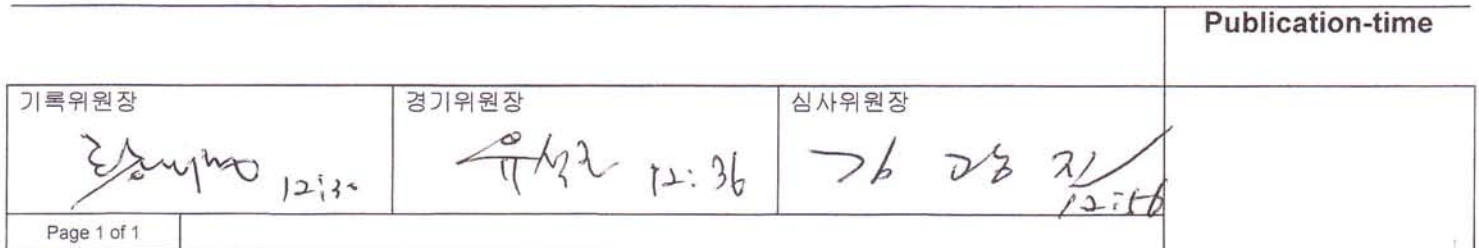 Publication-time
기록위원장
경기위원장
심사위원장
12:30
12:36
12:56
Page 1 of 1